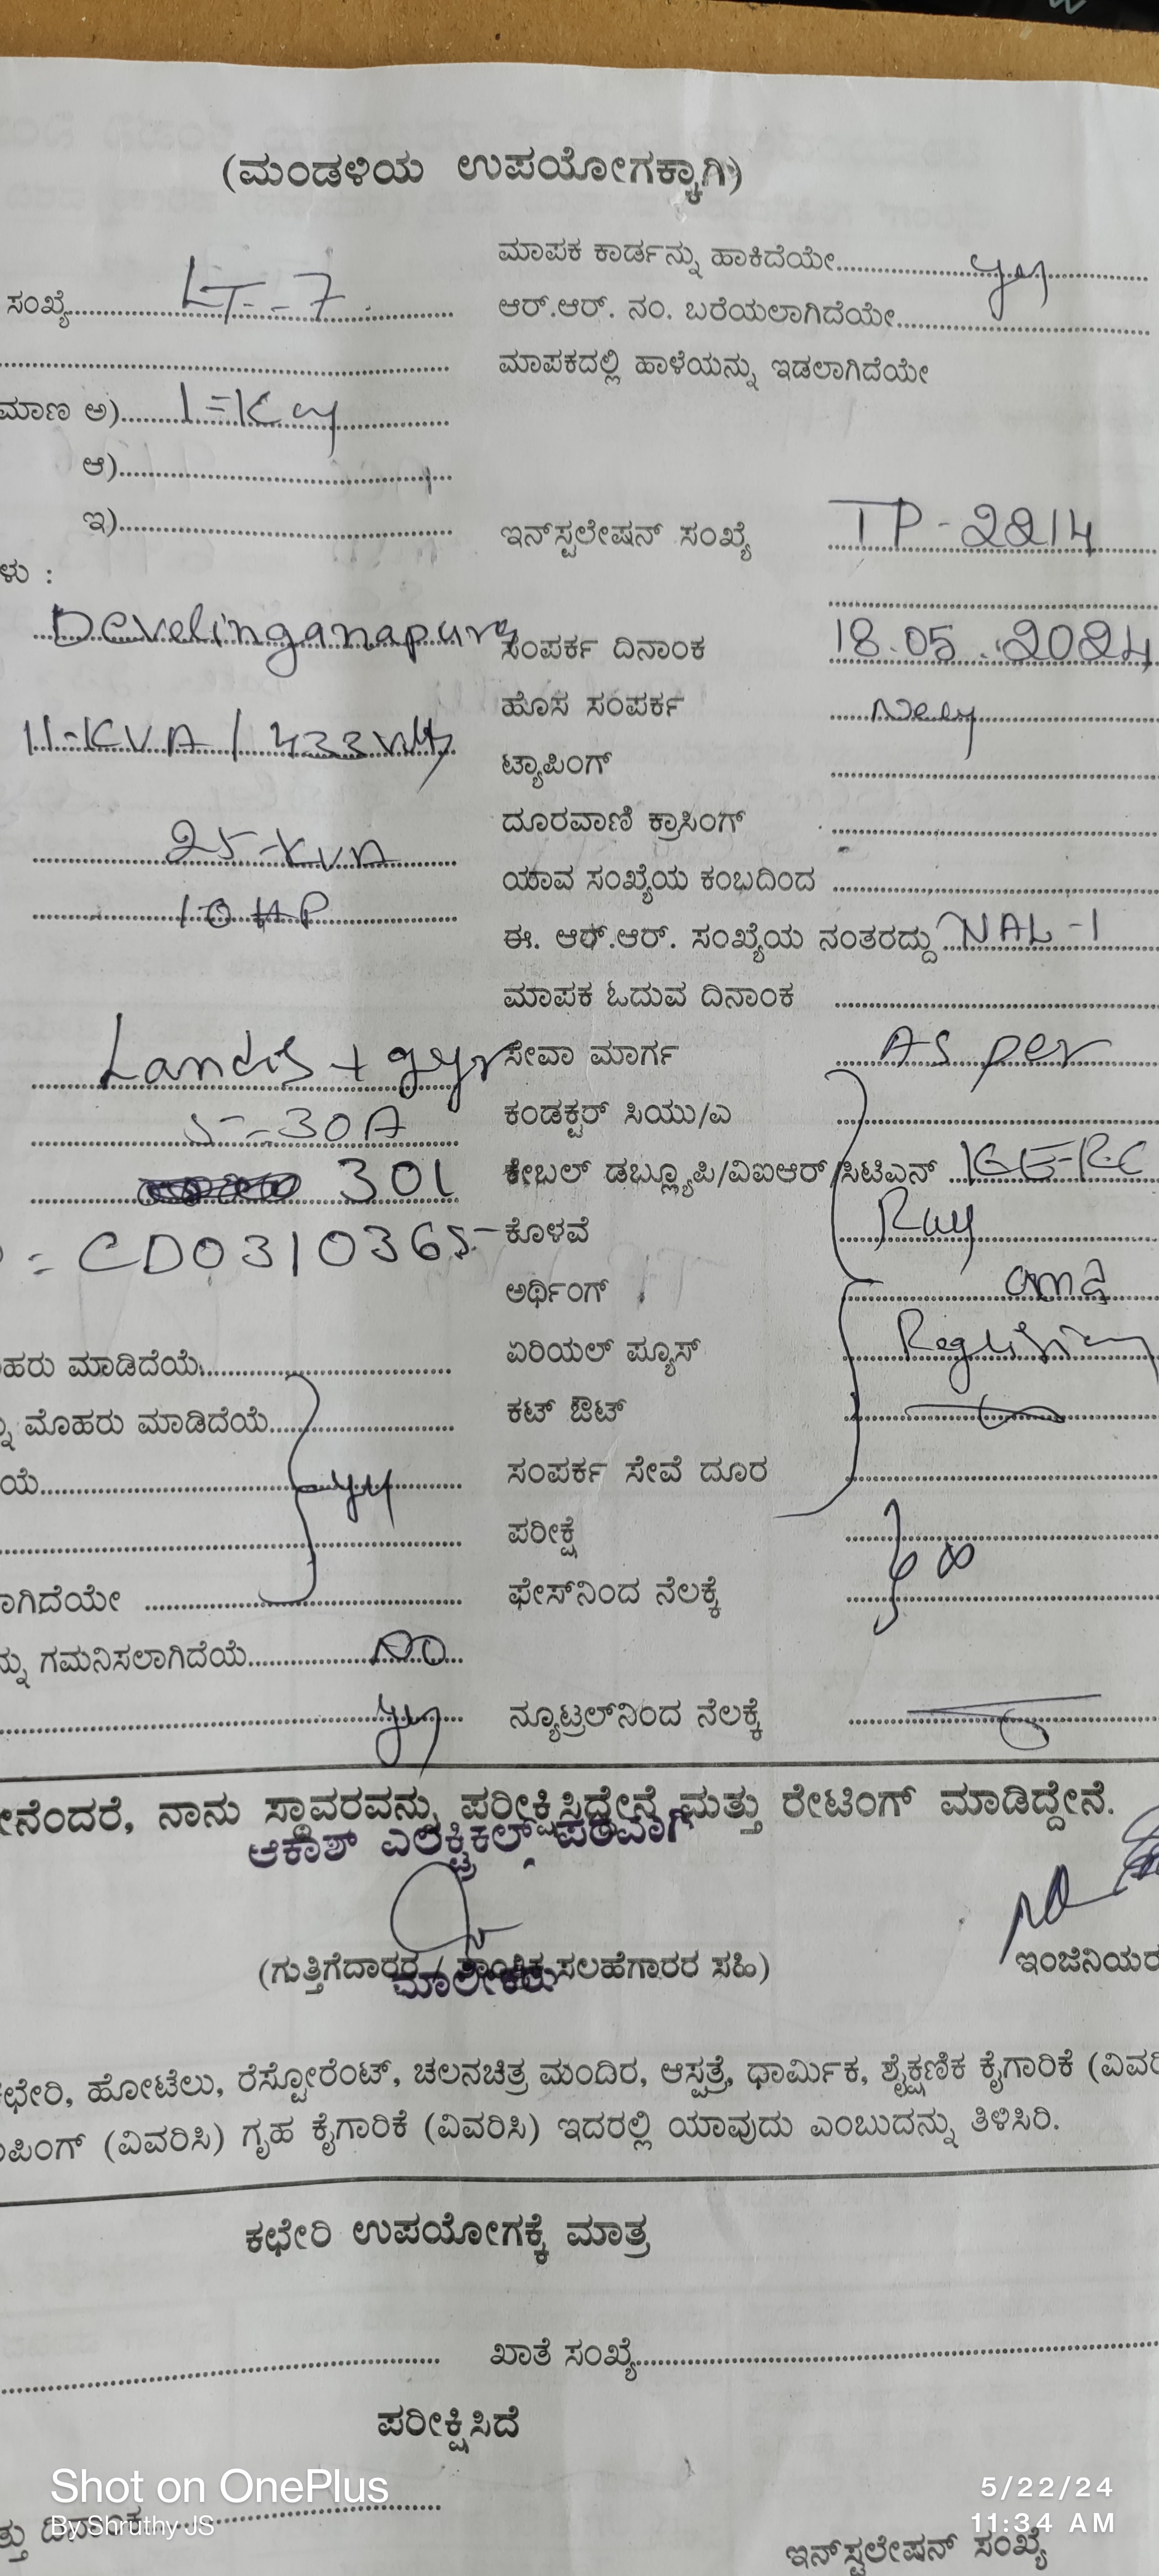 (ಮಂಡಳಿಯ ಉಪಯೋಗಕ್ಕಾಗಿ)
ಸಂಖ್ಯೆ LT-7
ಮಾಣ ಅ)
ಆ)
ಇ)
ಳು :
Develinganapura
11-KVA / 433
25-KVA
10 HP
Landis + gyr
5-30A
301
= CD0310365
ಹರು ಮಾಡಿದೆಯೆ
ಮೊಹರು ಮಾಡಿದೆಯೆ
ಯೆ
ಾಗಿದೆಯೇ
ನ್ನು ಗಮನಿಸಲಾಗಿದೆಯೆ NO
ಮಾಪಕ ಕಾರ್ಡನ್ನು ಹಾಕಿದೆಯೇ yes
ಆರ್.ಆರ್. ನಂ. ಬರೆಯಲಾಗಿದೆಯೇ
ಮಾಪಕದಲ್ಲಿ ಹಾಳೆಯನ್ನು ಇಡಲಾಗಿದೆಯೇ
ಇನ್‌ಸ್ಟಲೇಷನ್ ಸಂಖ್ಯೆ TP-2214
ಸಂಪರ್ಕ ದಿನಾಂಕ 18.05.2024
ಹೊಸ ಸಂಪರ್ಕ New
ಟ್ಯಾಪಿಂಗ್
ದೂರವಾಣಿ ಕ್ರಾಸಿಂಗ್
ಯಾವ ಸಂಖ್ಯೆಯ ಕಂಭದಿಂದ
ಈ. ಆರ್.ಆರ್. ಸಂಖ್ಯೆಯ ನಂತರದ್ದು NAL-1
ಮಾಪಕ ಓದುವ ದಿನಾಂಕ
ಸೇವಾ ಮಾರ್ಗ As per
ಕಂಡಕ್ಟರ್ ಸಿಯು/ಎ
ಕೇಬಲ್ ಡಬ್ಲ್ಯೂಪಿ/ವಿಐಆರ್/ಸಿಟಿಎನ್ KERC
ಕೊಳವೆ
ಅರ್ಥಿಂಗ್ and
ಏರಿಯಲ್ ಪ್ಯೂಸ್
ಕಟ್ ಔಟ್
ಸಂಪರ್ಕ ಸೇವೆ ದೂರ
ಪರೀಕ್ಷೆ
ಫೇಸ್‌ನಿಂದ ನೆಲಕ್ಕೆ
ನ್ಯೂಟ್ರಲ್‌ನಿಂದ ನೆಲಕ್ಕೆ
ನೆಂದರೆ, ನಾನು ಸ್ಥಾವರವನ್ನು ಪರೀಕ್ಷಿಸಿದ್ದೇನೆ ಮತ್ತು ರೇಟಿಂಗ್ ಮಾಡಿದ್ದೇನೆ.
ಆಕಾಶ್ ಎಲೆಕ್ಟ್ರಿಕಲ್ಸ್ ಪರವಾಗಿ
(ಗುತ್ತಿಗೆದಾರರ / ತಾಂತ್ರಿಕ ಸಲಹೆಗಾರರ ಸಹಿ) ಇಂಜಿನಿಯರ
ಮಾಲೀಕರು
ಕಛೇರಿ, ಹೋಟೆಲು, ರೆಸ್ಟೋರೆಂಟ್, ಚಲನಚಿತ್ರ ಮಂದಿರ, ಆಸ್ಪತ್ರೆ, ಧಾರ್ಮಿಕ, ಶೈಕ್ಷಣಿಕ ಕೈಗಾರಿಕೆ (ವಿವರಿ
ಪಿಂಗ್ (ವಿವರಿಸಿ) ಗೃಹ ಕೈಗಾರಿಕೆ (ವಿವರಿಸಿ) ಇದರಲ್ಲಿ ಯಾವುದು ಎಂಬುದನ್ನು ತಿಳಿಸಿರಿ.
ಕಛೇರಿ ಉಪಯೋಗಕ್ಕೆ ಮಾತ್ರ
ಖಾತೆ ಸಂಖ್ಯೆ
ಪರೀಕ್ಷಿಸಿದೆ
ತ್ತು ದಿನಾಂಕ
ಇನ್‌ಸ್ಟಲೇಷನ್ ಸಂಖ್ಯೆ
Shot on OnePlus
By Shruthy JS
5/22/24
11:34 AM